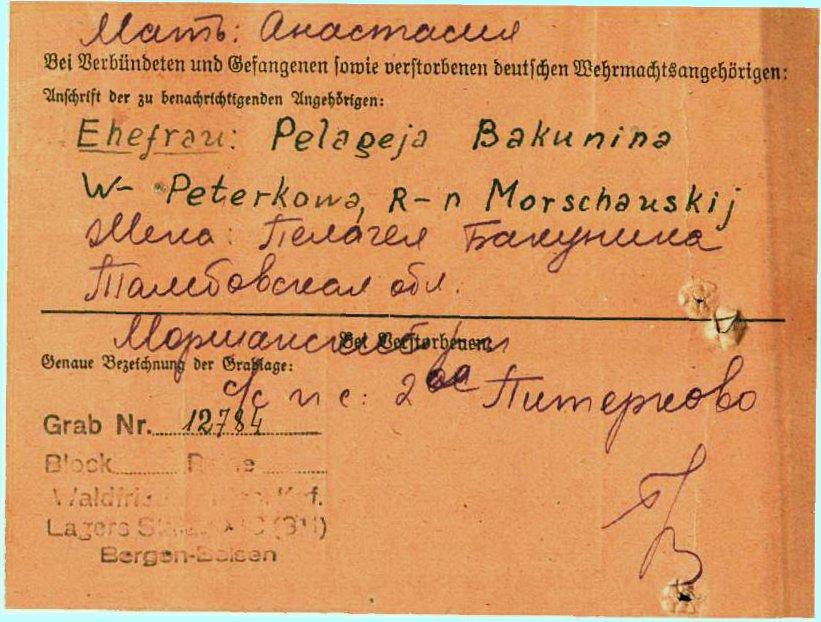 Мать: Анастасия
Bei Verbündeten und Gefangenen sowie verstorbenen deutschen Wehrmachtsangehörigen:
Anschrift der zu benachrichtigenden Angehörigen:
Ehefrau: Pelageja Bakunina
W- Peterkowa, R-n Morschauskij
Жена: Пелагея Бакунина
Тамбовская обл.
Моршанский р-н
Bei Verstorbenen:
Genaue Bezeichnung der Grablage:
с/с и с: 2ое Питерково
Grab Nr. 12784
Block Reihe
Lagers
Bergen-Belsen